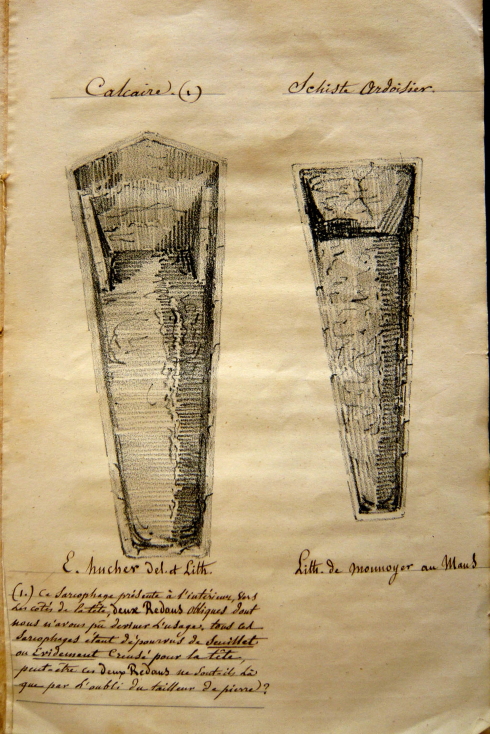 Calcaire. (1)
Schiste Ardoisier.
E. hucher Del. et Lith.
Lith. de monnoyer au Mans
(1.) Ce Sarcophage présente à l'intérieur, vers
les côtés de la tête, deux Redans obliques dont
nous n'avons pu deviner l'usage, tous ces
Sarcophages étant dépourvus de feuillet
ou Évidement Creusé pour la tête,
peut être ces deux Redans ne sont ils là
que par l'oubli du tailleur de pierre?